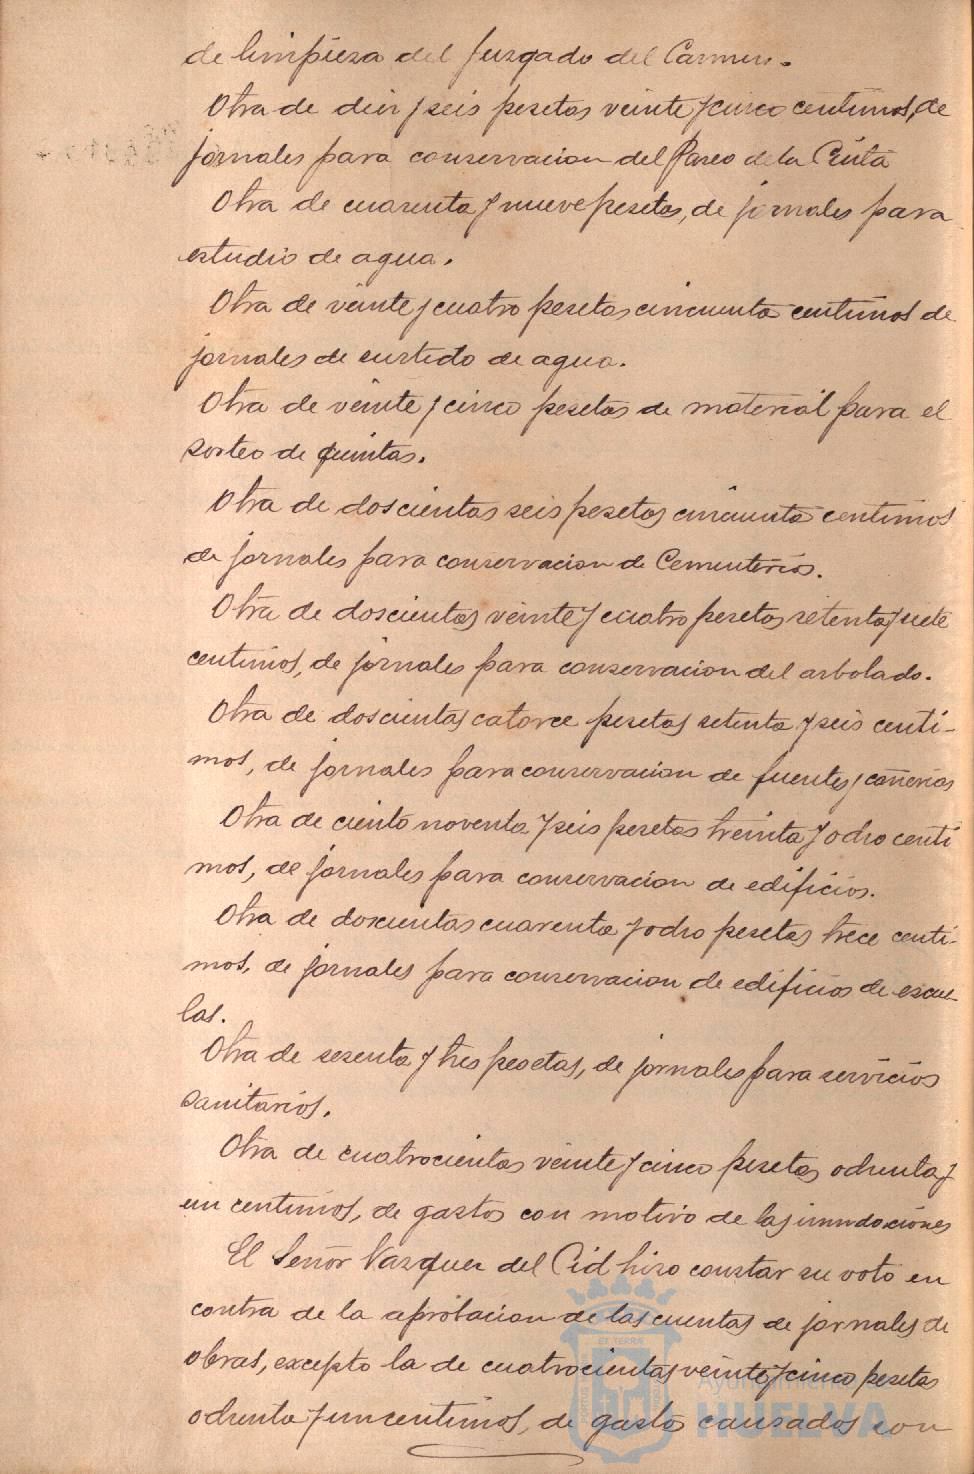 de limpieza del Juzgado del Carmen.
Otra de diez y seis pesetas veinte y cinco centimos, de
jornales para conservacion del Paseo de la Cinta
Otra de cuarenta y nueve pesetas, de jornales para
estudio de agua.
Otra de veinte y cuatro pesetas cincuenta centimos de
jornales de surtido de agua.
Otra de veinte y cinco pesetas de material para el
sorteo de quintas.
Otra de doscientas seis pesetas cincuenta centimos
de jornales para conservacion de Cementerios.
Otra de doscientas veinte y cuatro pesetas setenta y siete
centimos, de jornales para conservacion del arbolado.
Otra de doscientas catorce pesetas setenta y seis centi-
mos, de jornales para conservacion de fuentes y cañerias
Otra de ciento noventa y seis pesetas treinta y ocho centi
mos, de jornales para conservacion de edificios.
Otra de doscientas cuarenta y ocho pesetas trece centi-
mos, de jornales para conservacion de edificios de escue-
las.
Otra de sesenta y tres pesetas, de jornales para servicios
sanitarios.
Otra de cuatrocientas veinte y cinco pesetas ochenta y
un centimos, de gastos con motivo de las inundaciones
El Señor Vazquez del Cid hizo constar su voto en
contra de la aprobacion de las cuentas de jornales de
obras, excepto la de cuatrocientas veinte y cinco pesetas
ochenta y un centimos, de gastos causados con
Ayuntamiento
HUELVA